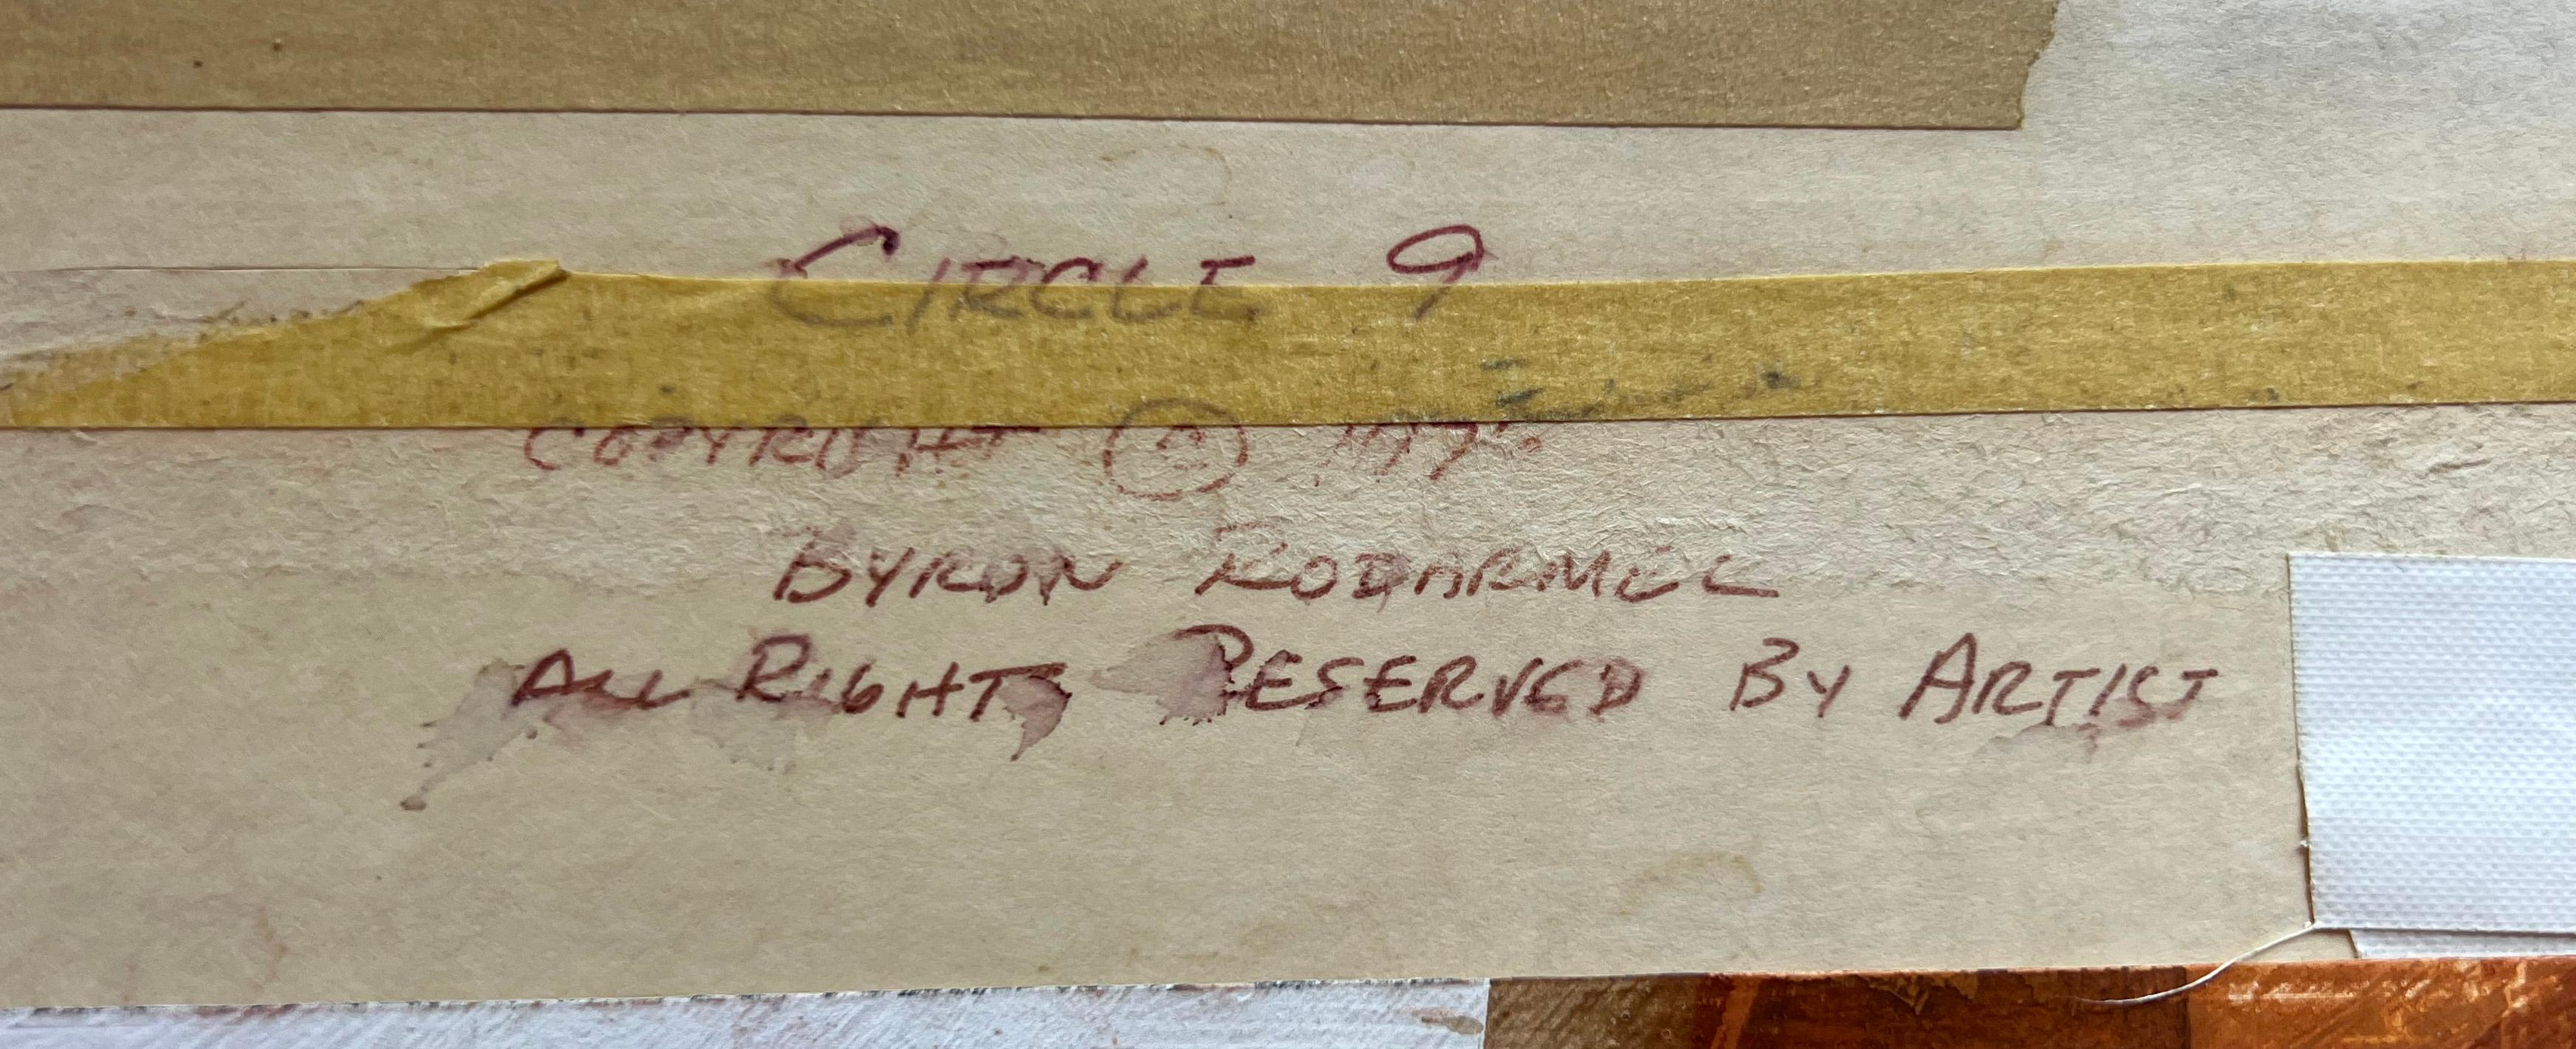 CIRCLE 9
COPYRIGHT ©
BYRON RODARMEL
ALL RIGHTS RESERVED BY ARTIST